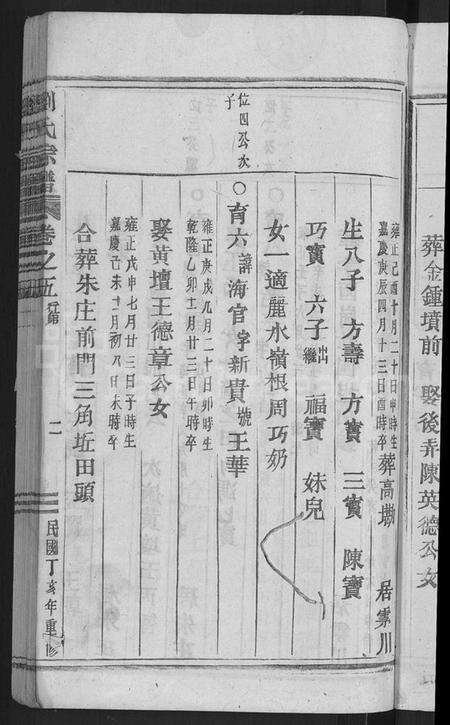 葬金鍾墳前 娶後弄陳英德公女
雍正己酉十月二十日申時生
嘉慶庚辰四月十三日酉時卒
葬高墈 居雲川
生八子 方壽 方寳 三寳 陳寳
巧寳 六子出繼 福寳 妹兒
女一適麗水嶺根周巧奶
位四公次子
○育六諱海官字新貴號王華
雍正庚戌九月二十日卯時生
乾隆乙卯十一月廿三日午時卒
娶黃壇王德章公女
雍正戊申七月廿三日子時生
嘉慶己未十二月初八日未時卒
合葬朱庄前門三角坵田頭
劉氏宗譜 卷之五 二
民國丁亥年重修